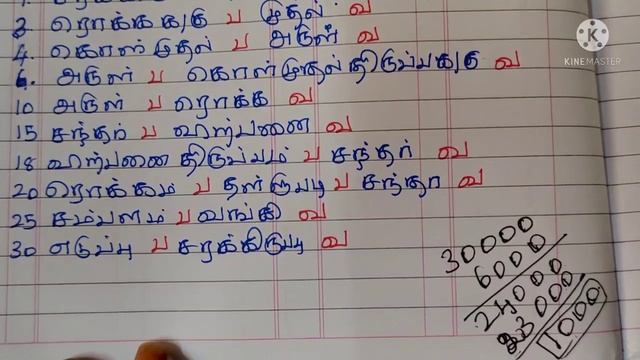 3. ரொக்கககு ப முதல் வ
4. கொள்முதல் ப அருள் வ
6. அருள் ப கொள்முதல் திருப்பககு வ
10 அருள் ப ரொக்க வ
15 சந்தர் ப விற்பனை வ
18 விற்பனை திருப்பம் ப சந்தர் வ
20 ரொக்கம் ப தள்ளுபடி ப சந்தர் வ
25 சம்பளம் ப வங்கி வ
30 எடுப்பு ப சரக்கிருப்பு வ
30000
6000
24000
23000
1000
KINEMASTER